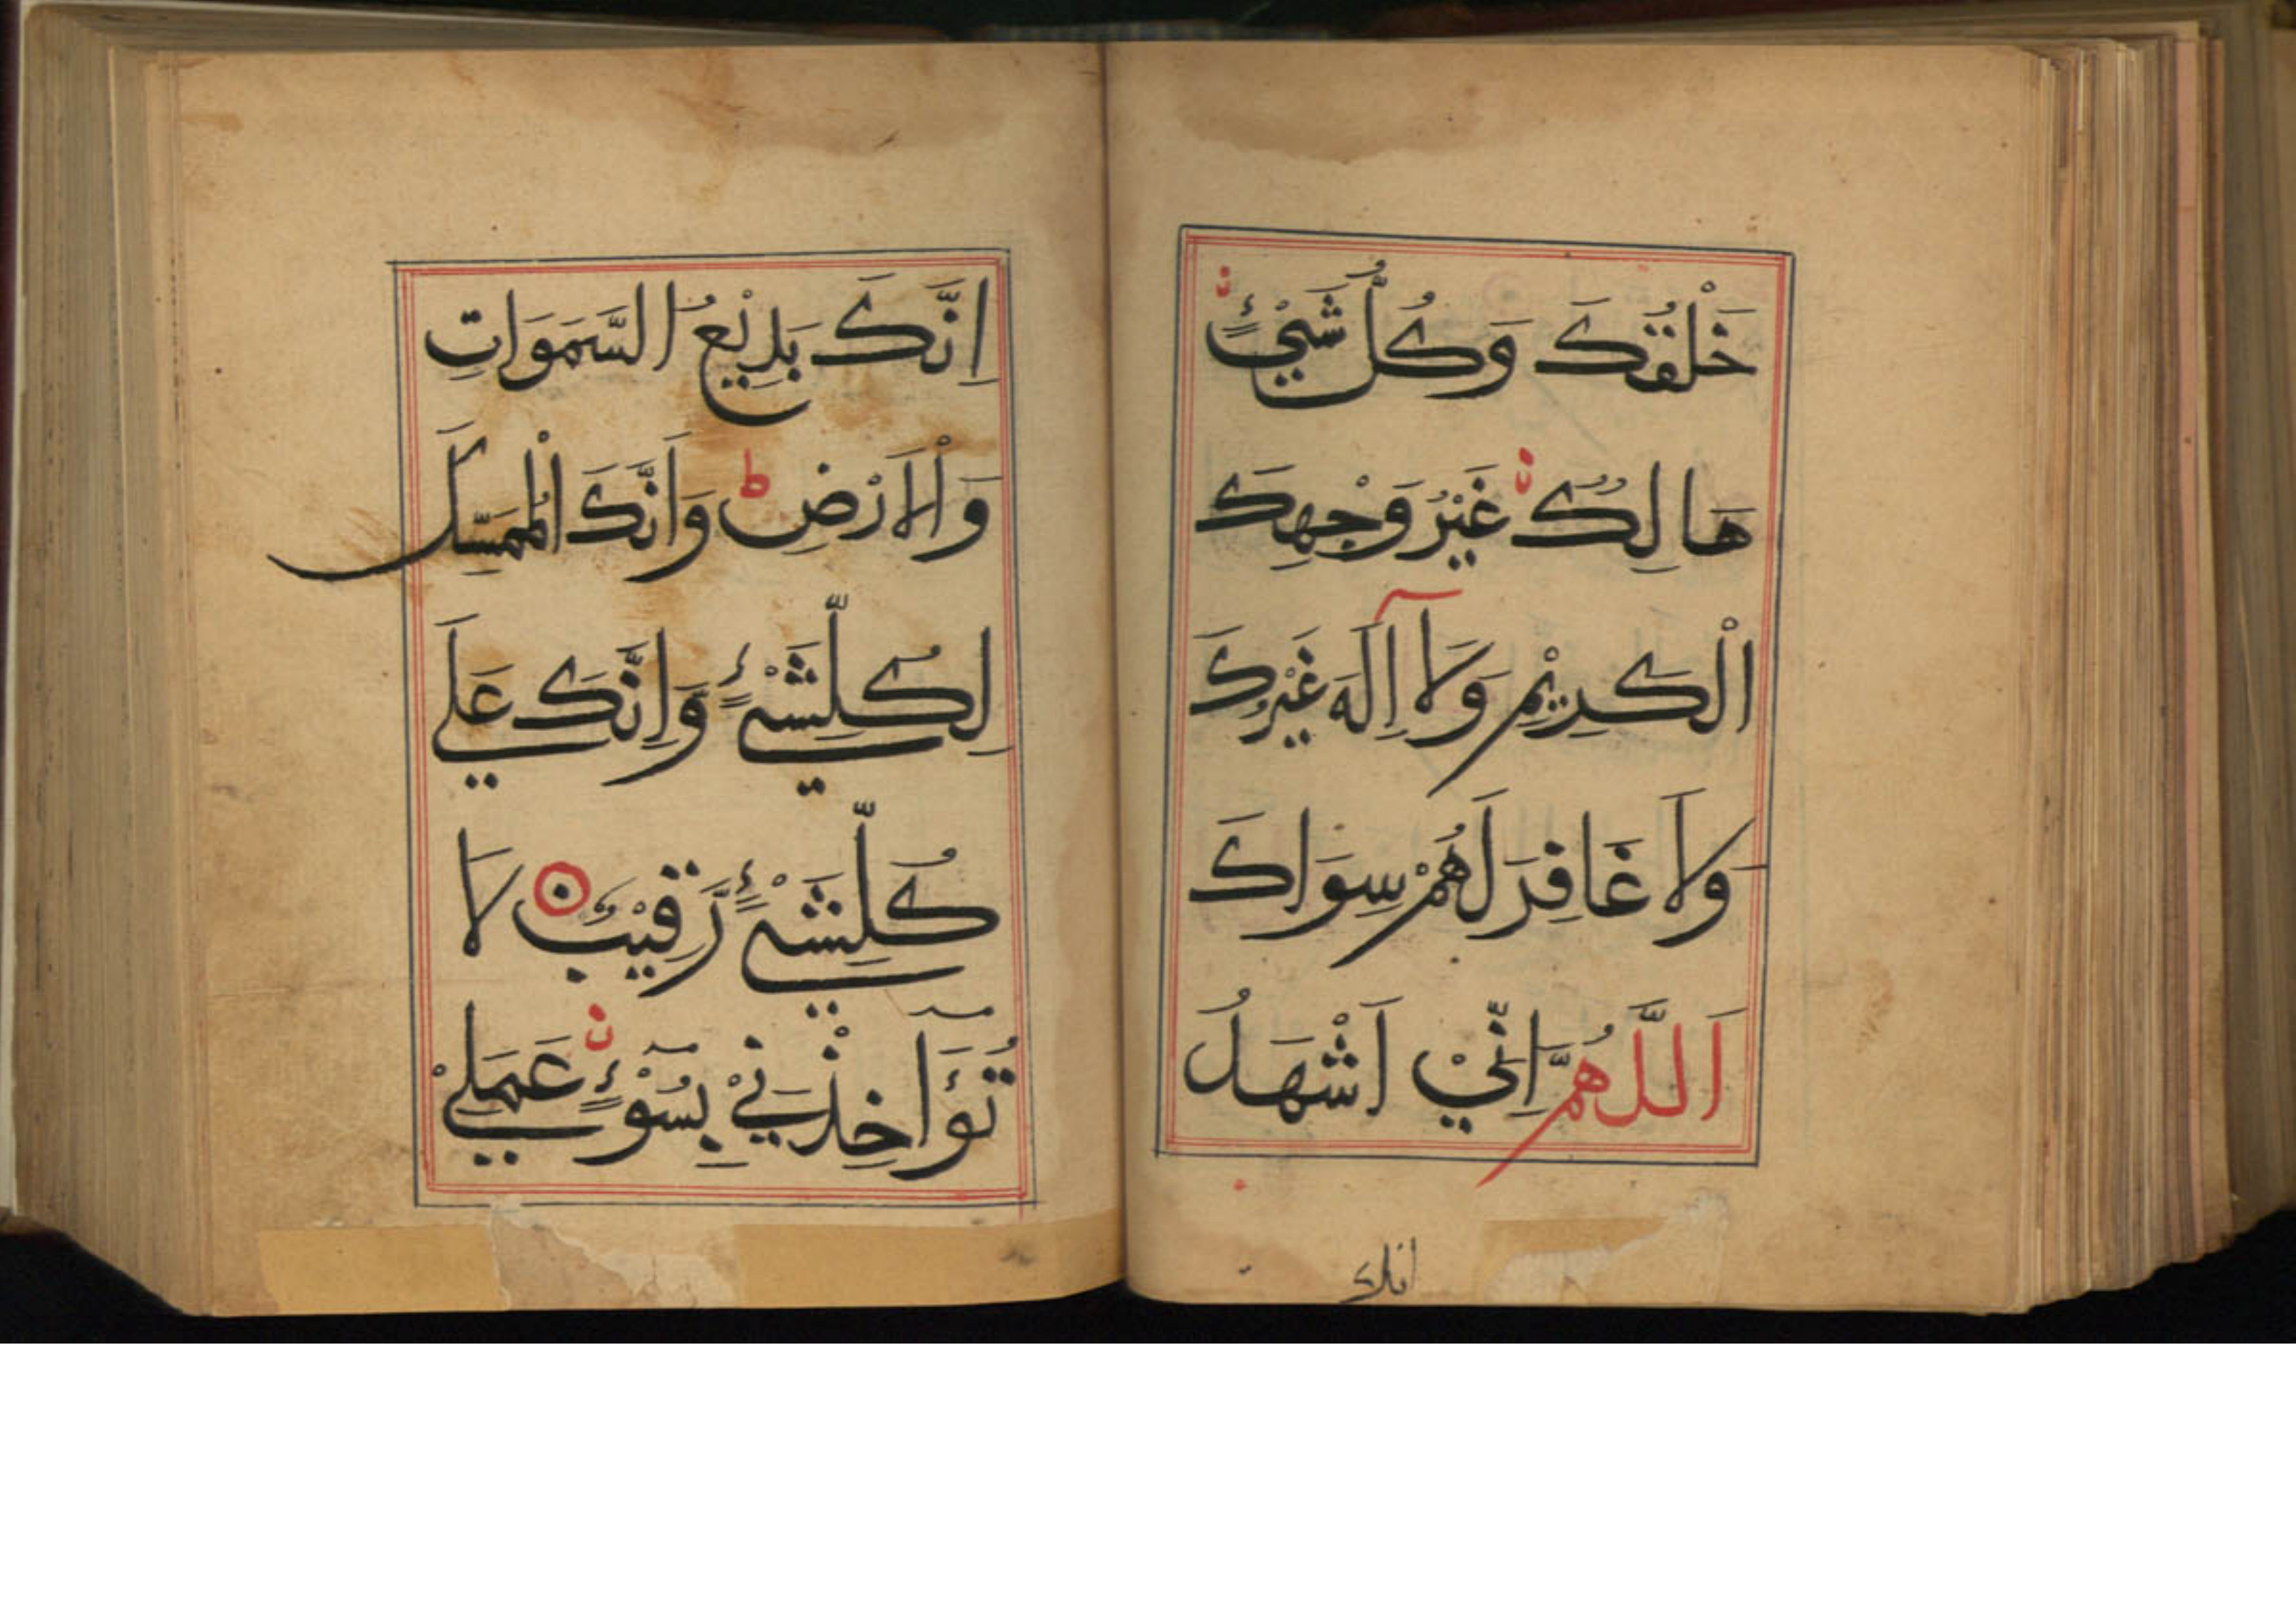 خَلْقُكَ وَكُلُّ شَيْءٍ
هَا لِكٌ غَيْرُ وَجْهِكَ
الْكَرِيْمِ وَلَا اِلَهَ غَيْرِكَ
وَلَا غَافِرَ لَهُمْ سِوَاكَ
اَللَّهُمَّ اِنِّيْ اَشْهَدُ
انك
اِنَّكَ بَدِيْعُ السَّمَوَاتِ
وَالْاَرْضِ ط وَاَنَّكَ الْمُمَسِّكَ
لِكُلِّشَيْءٍ وَاِنَّكَ عَلَي
كُلِّشَيْءٍ رَّقِيْبٌ لَا
تُؤَاخِذْنِيْ بِسُوْءٍ عَمَلِيْ